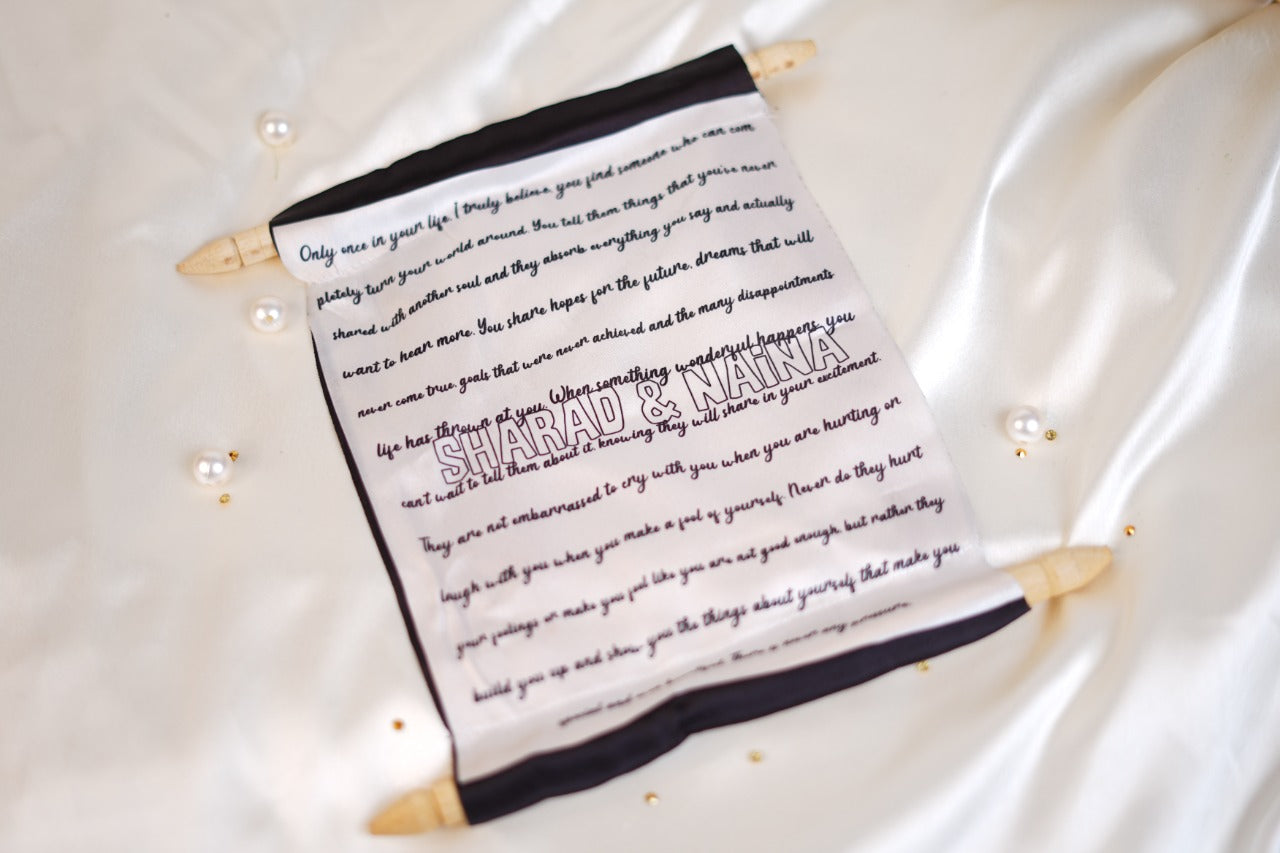 Only once in your life, I truly believe, you find someone who can com
pletely turn your world around. You tell them things that you've never
shared with another soul and they absorb everything you say and actually
want to hear more. You share hopes for the future, dreams that will
never come true, goals that were never achieved and the many disappointments
life has thrown at you. When something wonderful happens, you
SHARAD & NAiNA
can't wait to tell them about it, knowing they will share in your excitement.
They are not embarrassed to cry with you when you are hurting or
laugh with you when you make a fool of yourself. Never do they hurt
your feelings or make you feel like you are not good enough, but rather they
build you up and show you the things about yourself that make you